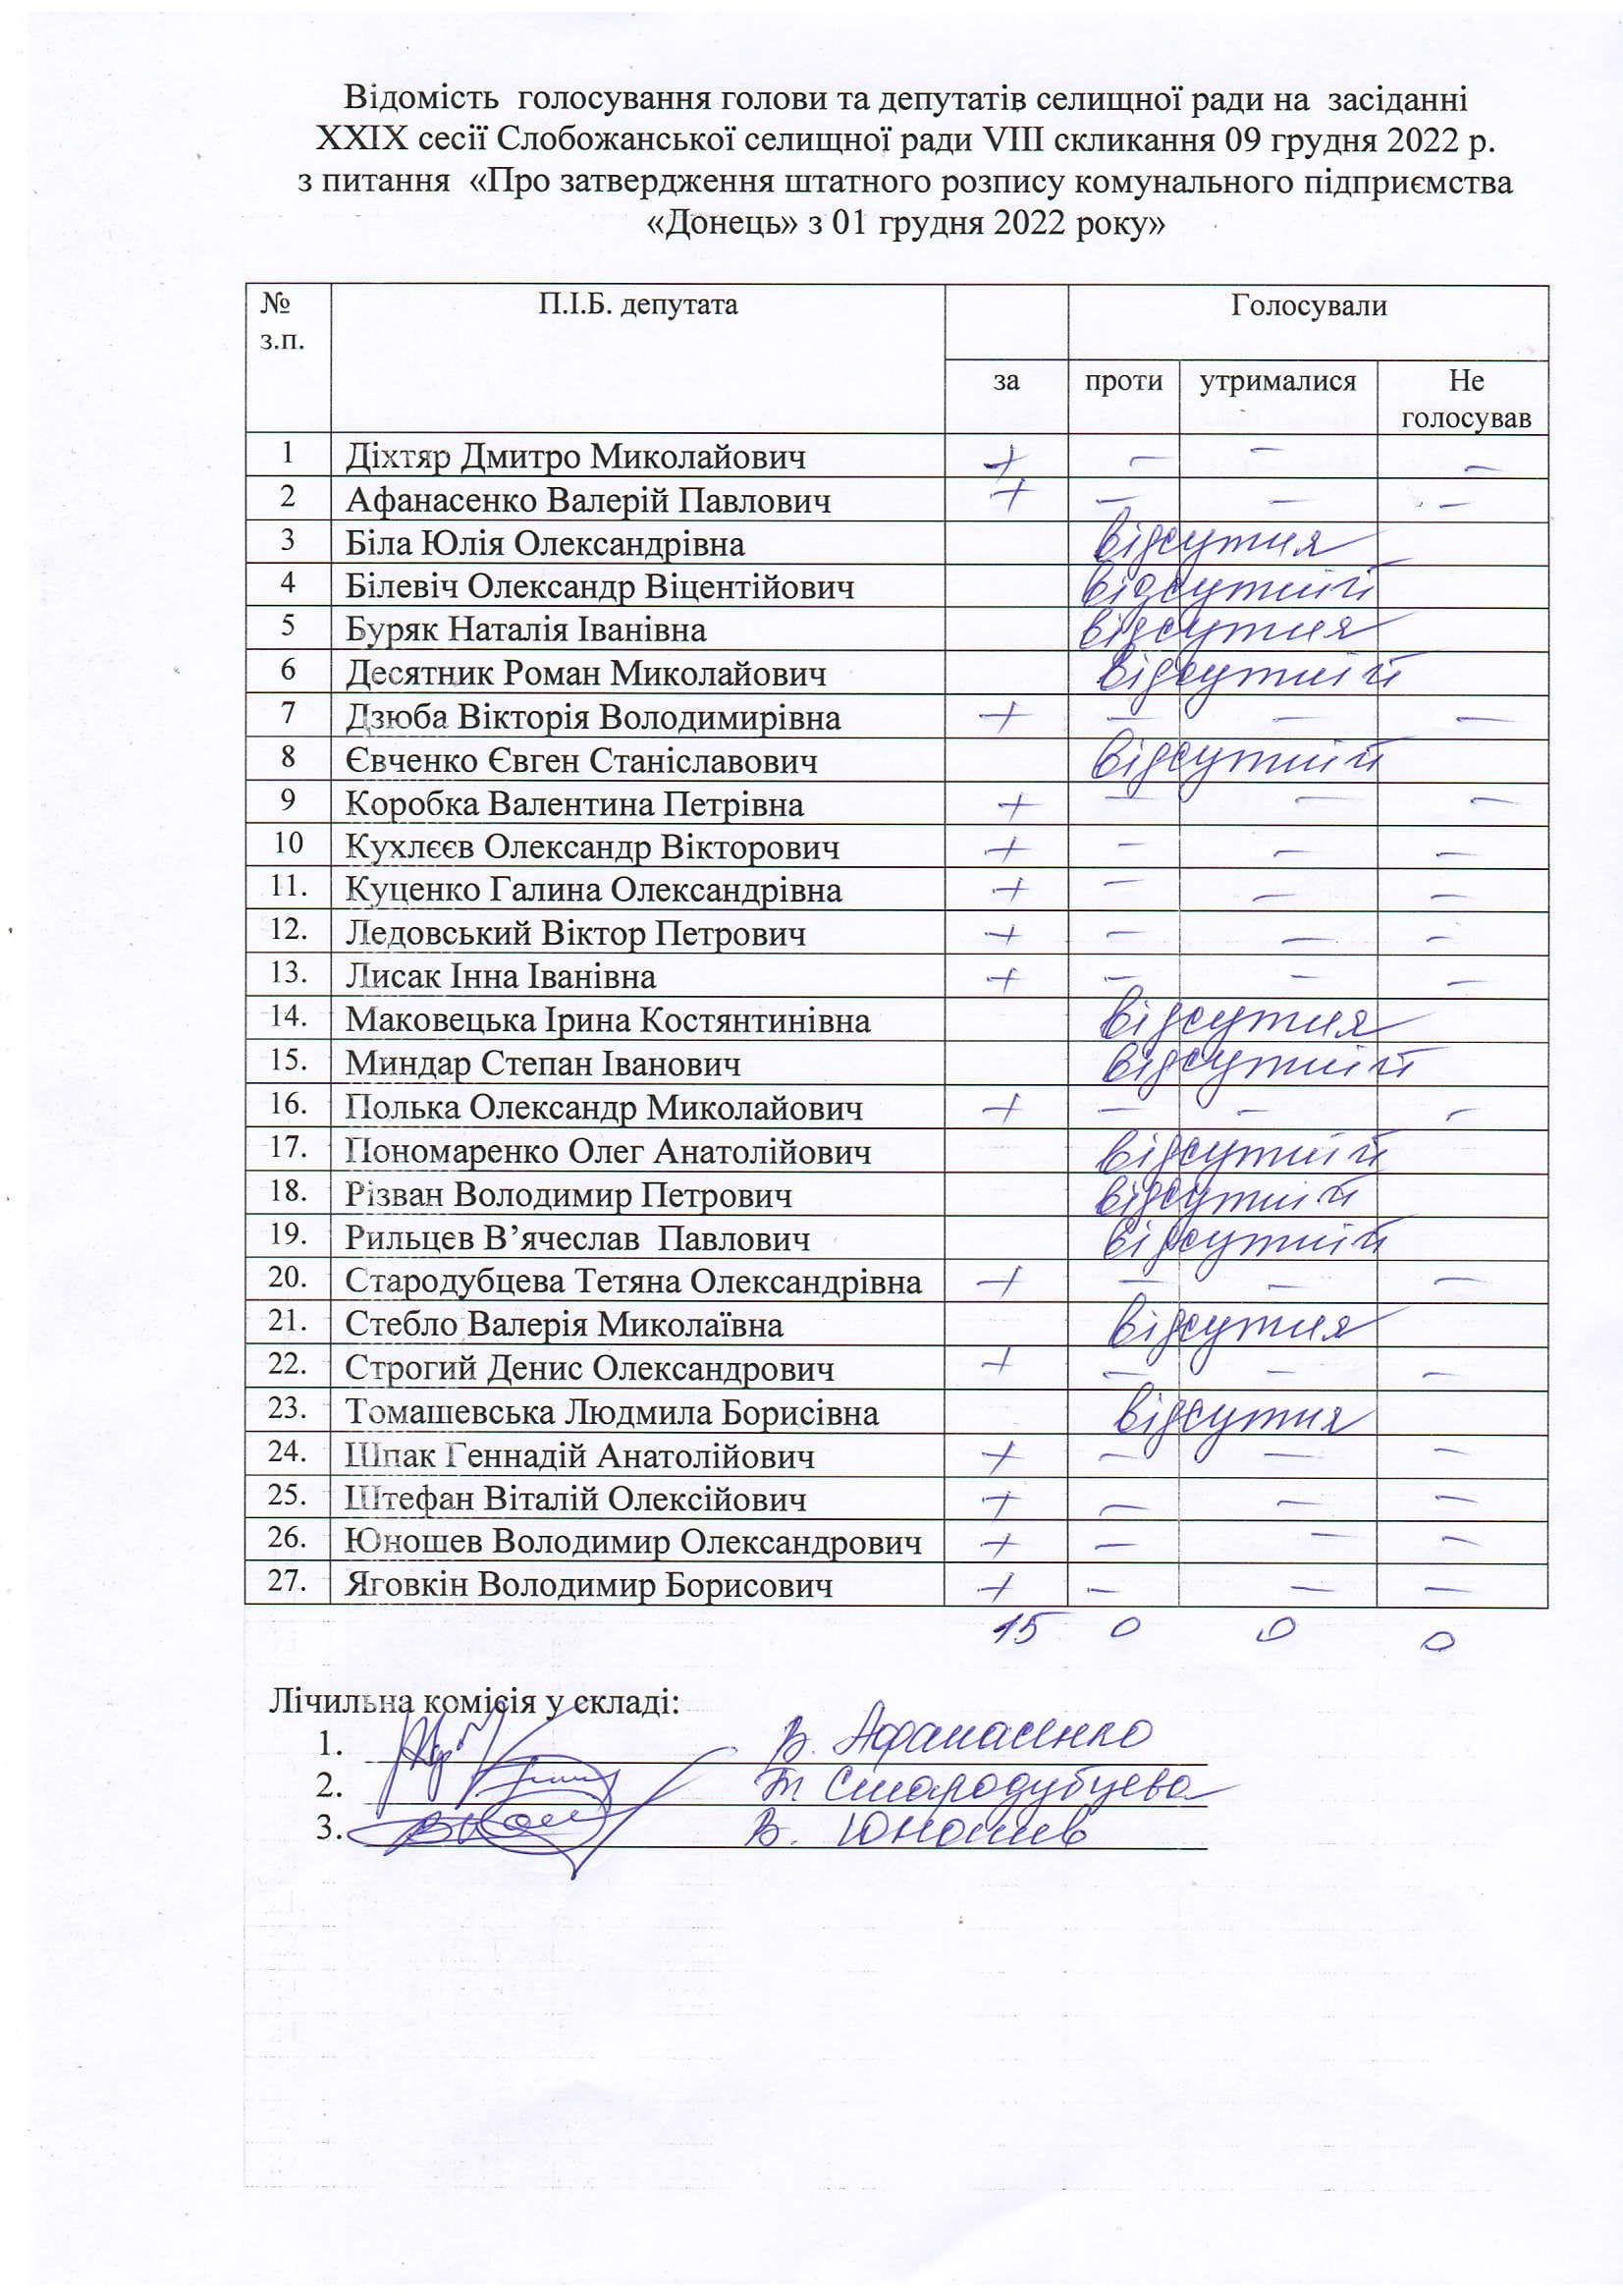 Відомість голосування голови та депутатів селищної ради на засіданні
XXIX сесії Слобожанської селищної ради VIII скликання 09 грудня 2022 р.
з питання «Про затвердження штатного розпису комунального підприємства
«Донець» з 01 грудня 2022 року»
№ П.І.Б. депутата Голосували
з.п.
за проти утрималися Не
голосував
1 Діхтяр Дмитро Миколайович + – – –
2 Афанасенко Валерій Павлович + – – –
3 Біла Юлія Олександрівна відсутня
4 Білевіч Олександр Віцентійович відсутній
5 Буряк Наталія Іванівна відсутня
6 Десятник Роман Миколайович відсутній
7 Дзюба Вікторія Володимирівна + – – –
8 Євченко Євген Станіславович відсутній
9 Коробка Валентина Петрівна + – – –
10 Кухлєєв Олександр Вікторович + – – –
11. Куценко Галина Олександрівна + – – –
12. Ледовський Віктор Петрович + – – –
13. Лисак Інна Іванівна + – – –
14. Маковецька Ірина Костянтинівна відсутня
15. Миндар Степан Іванович відсутній
16. Полька Олександр Миколайович + – – –
17. Пономаренко Олег Анатолійович відсутній
18. Різван Володимир Петрович відсутній
19. Рильцев В’ячеслав Павлович відсутній
20. Стародубцева Тетяна Олександрівна + – – –
21. Стебло Валерія Миколаївна відсутня
22. Строгий Денис Олександрович + – – –
23. Томашевська Людмила Борисівна відсутня
24. Шпак Геннадій Анатолійович + – – –
25. Штефан Віталій Олексійович + – – –
26. Юношев Володимир Олександрович + – – –
27. Яговкін Володимир Борисович + – – –
15 0 0 0
Лічильна комісія у складі:
1. В. Афанасенко
2. Т. Стародубцева
3. В. Юношев